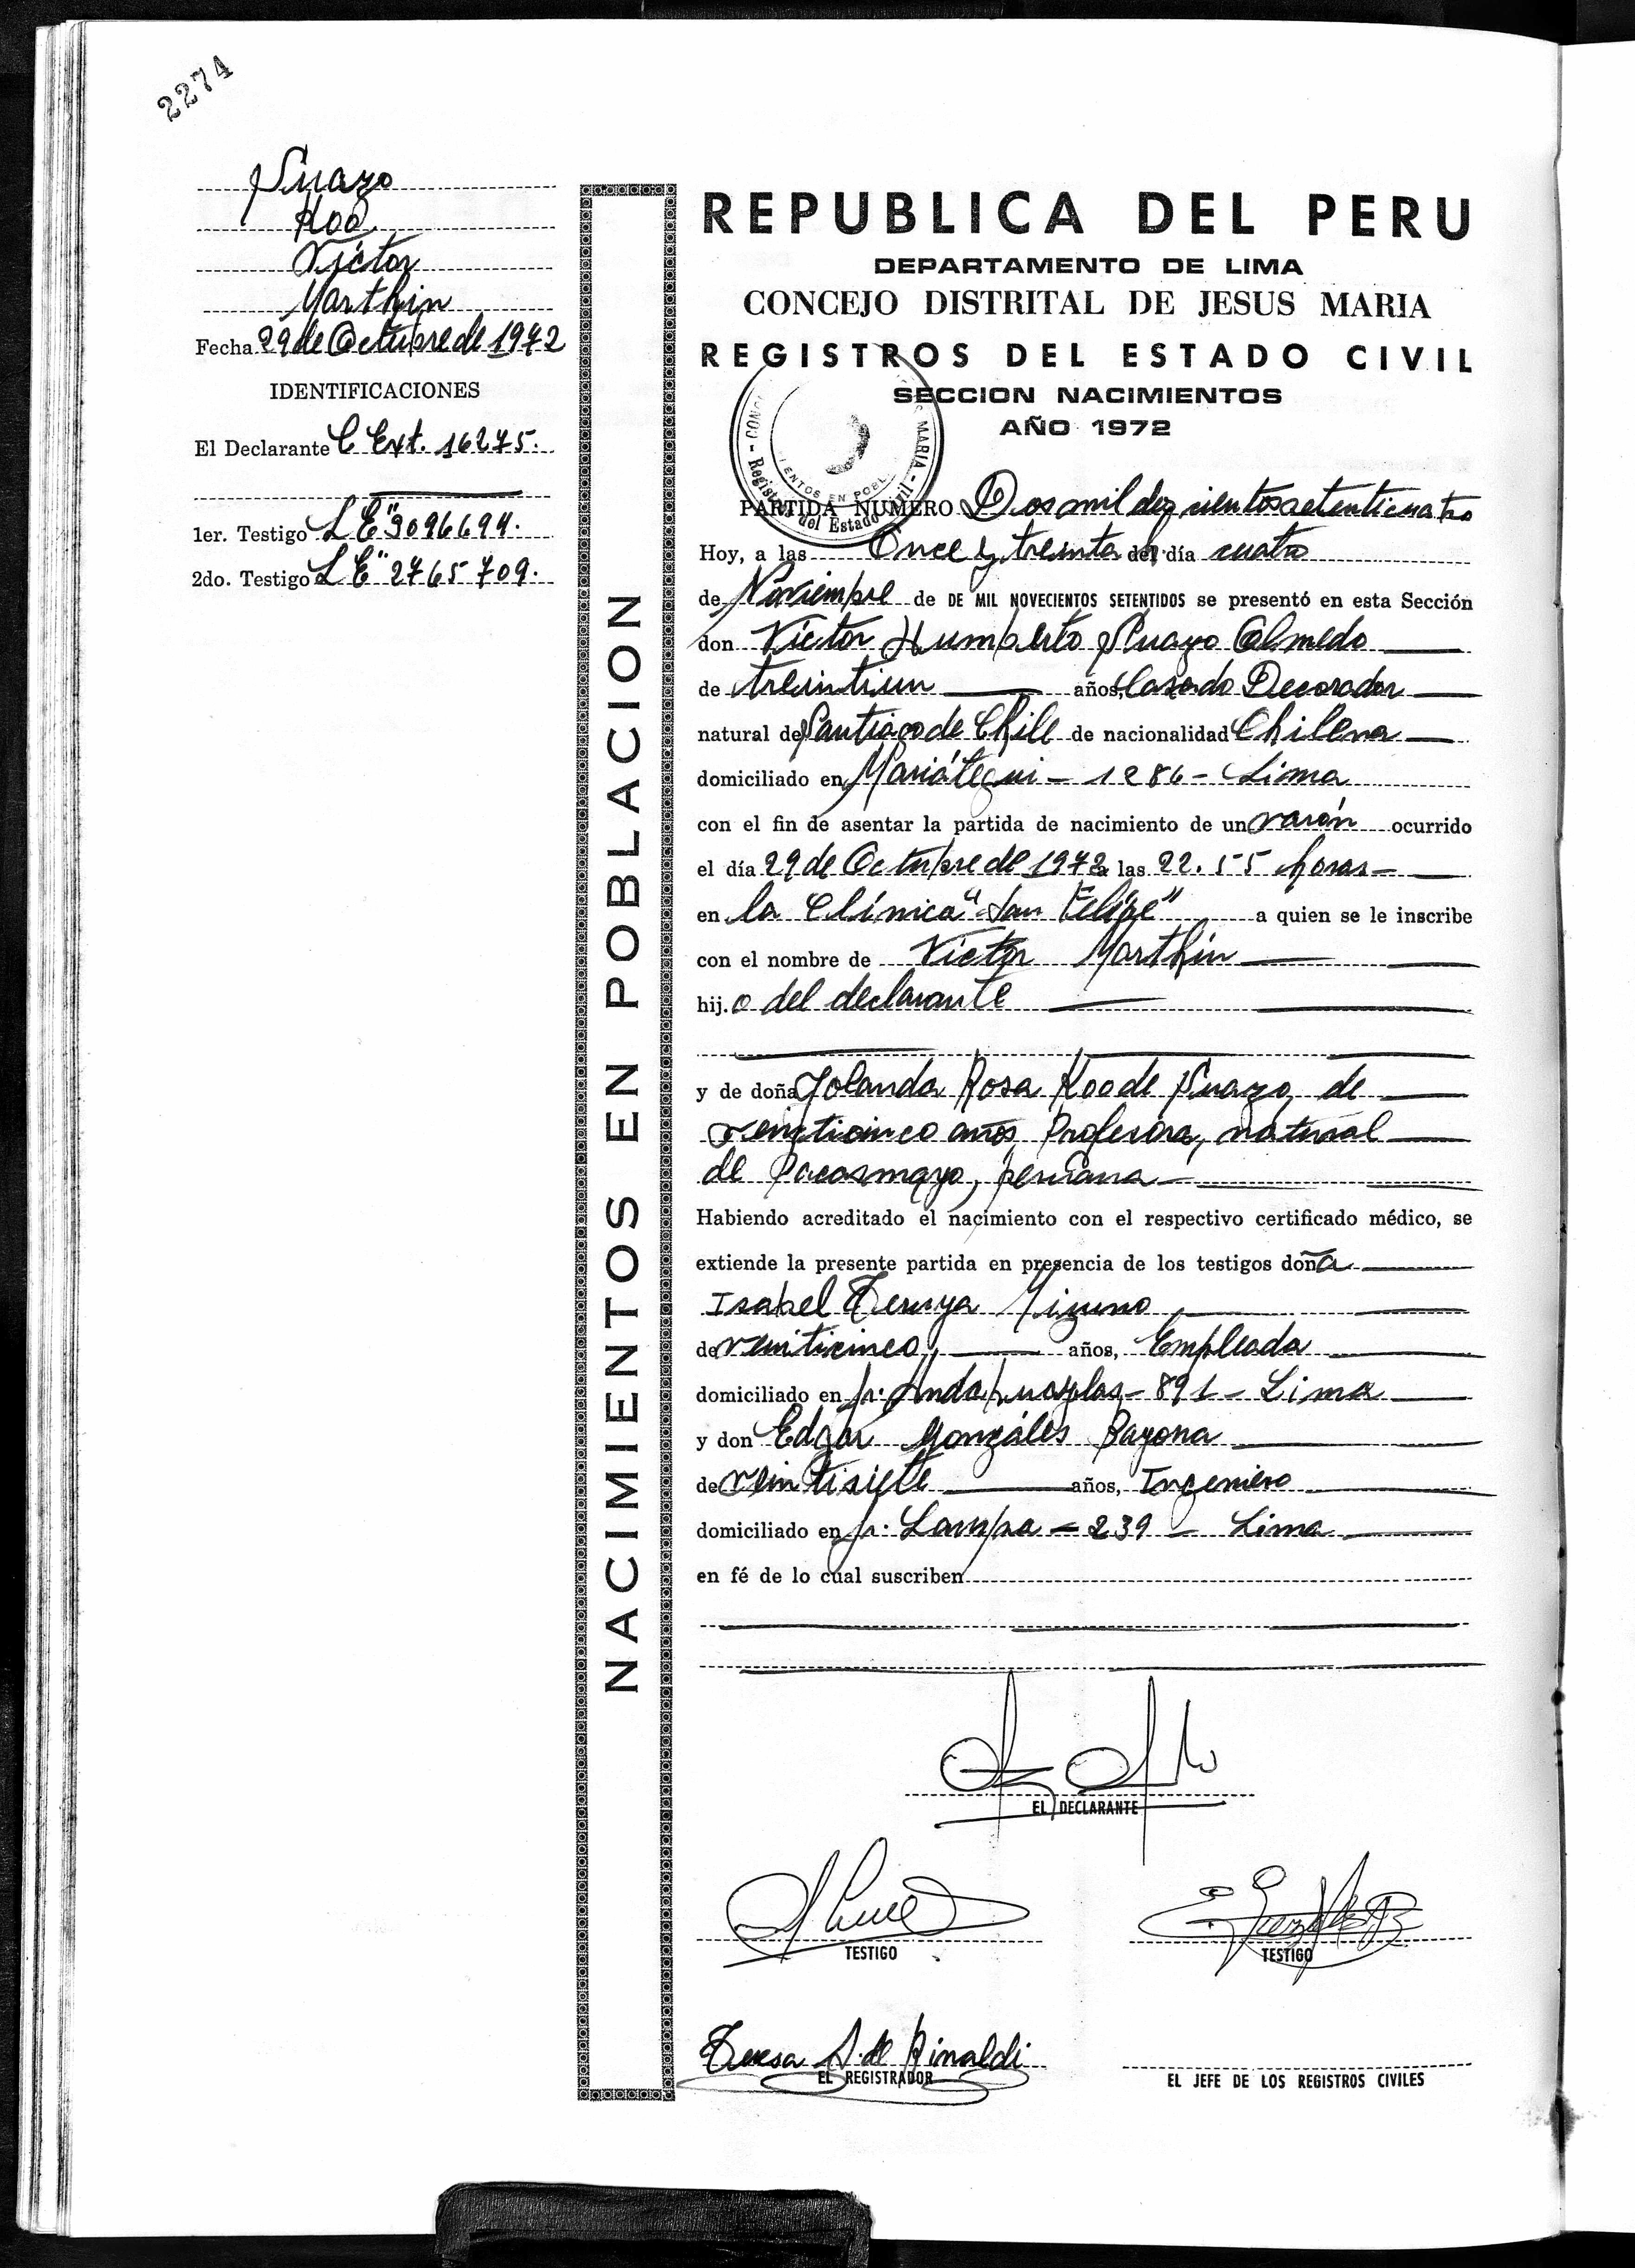 2274
Suazo
Koo
Víctor
Marthin
Fecha 29 de Octubre de 1972
IDENTIFICACIONES
El Declarante C Ext. 16275.
1er. Testigo L E" 3096694.
2do. Testigo L E" 2765709.
NACIMIENTOS EN POBLACION
REPUBLICA DEL PERU
DEPARTAMENTO DE LIMA
CONCEJO DISTRITAL DE JESUS MARIA
REGISTROS DEL ESTADO CIVIL
SECCION NACIMIENTOS
AÑO 1972
PARTIDA NUMERO Dos mil doscientos setenticuatro
Hoy, a las Once y treinta del día cuatro
de Noviembre de DE MIL NOVECIENTOS SETENTIDOS se presentó en esta Sección
don Víctor Humberto Suazo Olmedo
de treintiun años, Casado Decorador
natural de Santiago de Chile de nacionalidad Chilena
domiciliado en Mariátegui - 1286 - Lima
con el fin de asentar la partida de nacimiento de un varón ocurrido
el día 29 de Octubre de 1972 a las 22.55 horas
en la Clínica "San Felipe" a quien se le inscribe
con el nombre de Víctor Marthin
hij.o del declarante
y de doña Yolanda Rosa Koo de Suazo, de
veinticinco años, Profesora, natural
de Pacasmayo, peruana
Habiendo acreditado el nacimiento con el respectivo certificado médico, se
extiende la presente partida en presencia de los testigos doña
Isabel Teruya
de veinticinco, años, Empleada
domiciliado en Jr. Andahuaylas - 891 - Lima
y don Edgar Gonzáles Bayona
de veintisiete años, Ingeniero
domiciliado en Jr. Lampa - 239 - Lima
en fé de lo cual suscriben
EL DECLARANTE
TESTIGO
TESTIGO
Teresa A. de Rinaldi
EL REGISTRADOR
EL JEFE DE LOS REGISTROS CIVILES